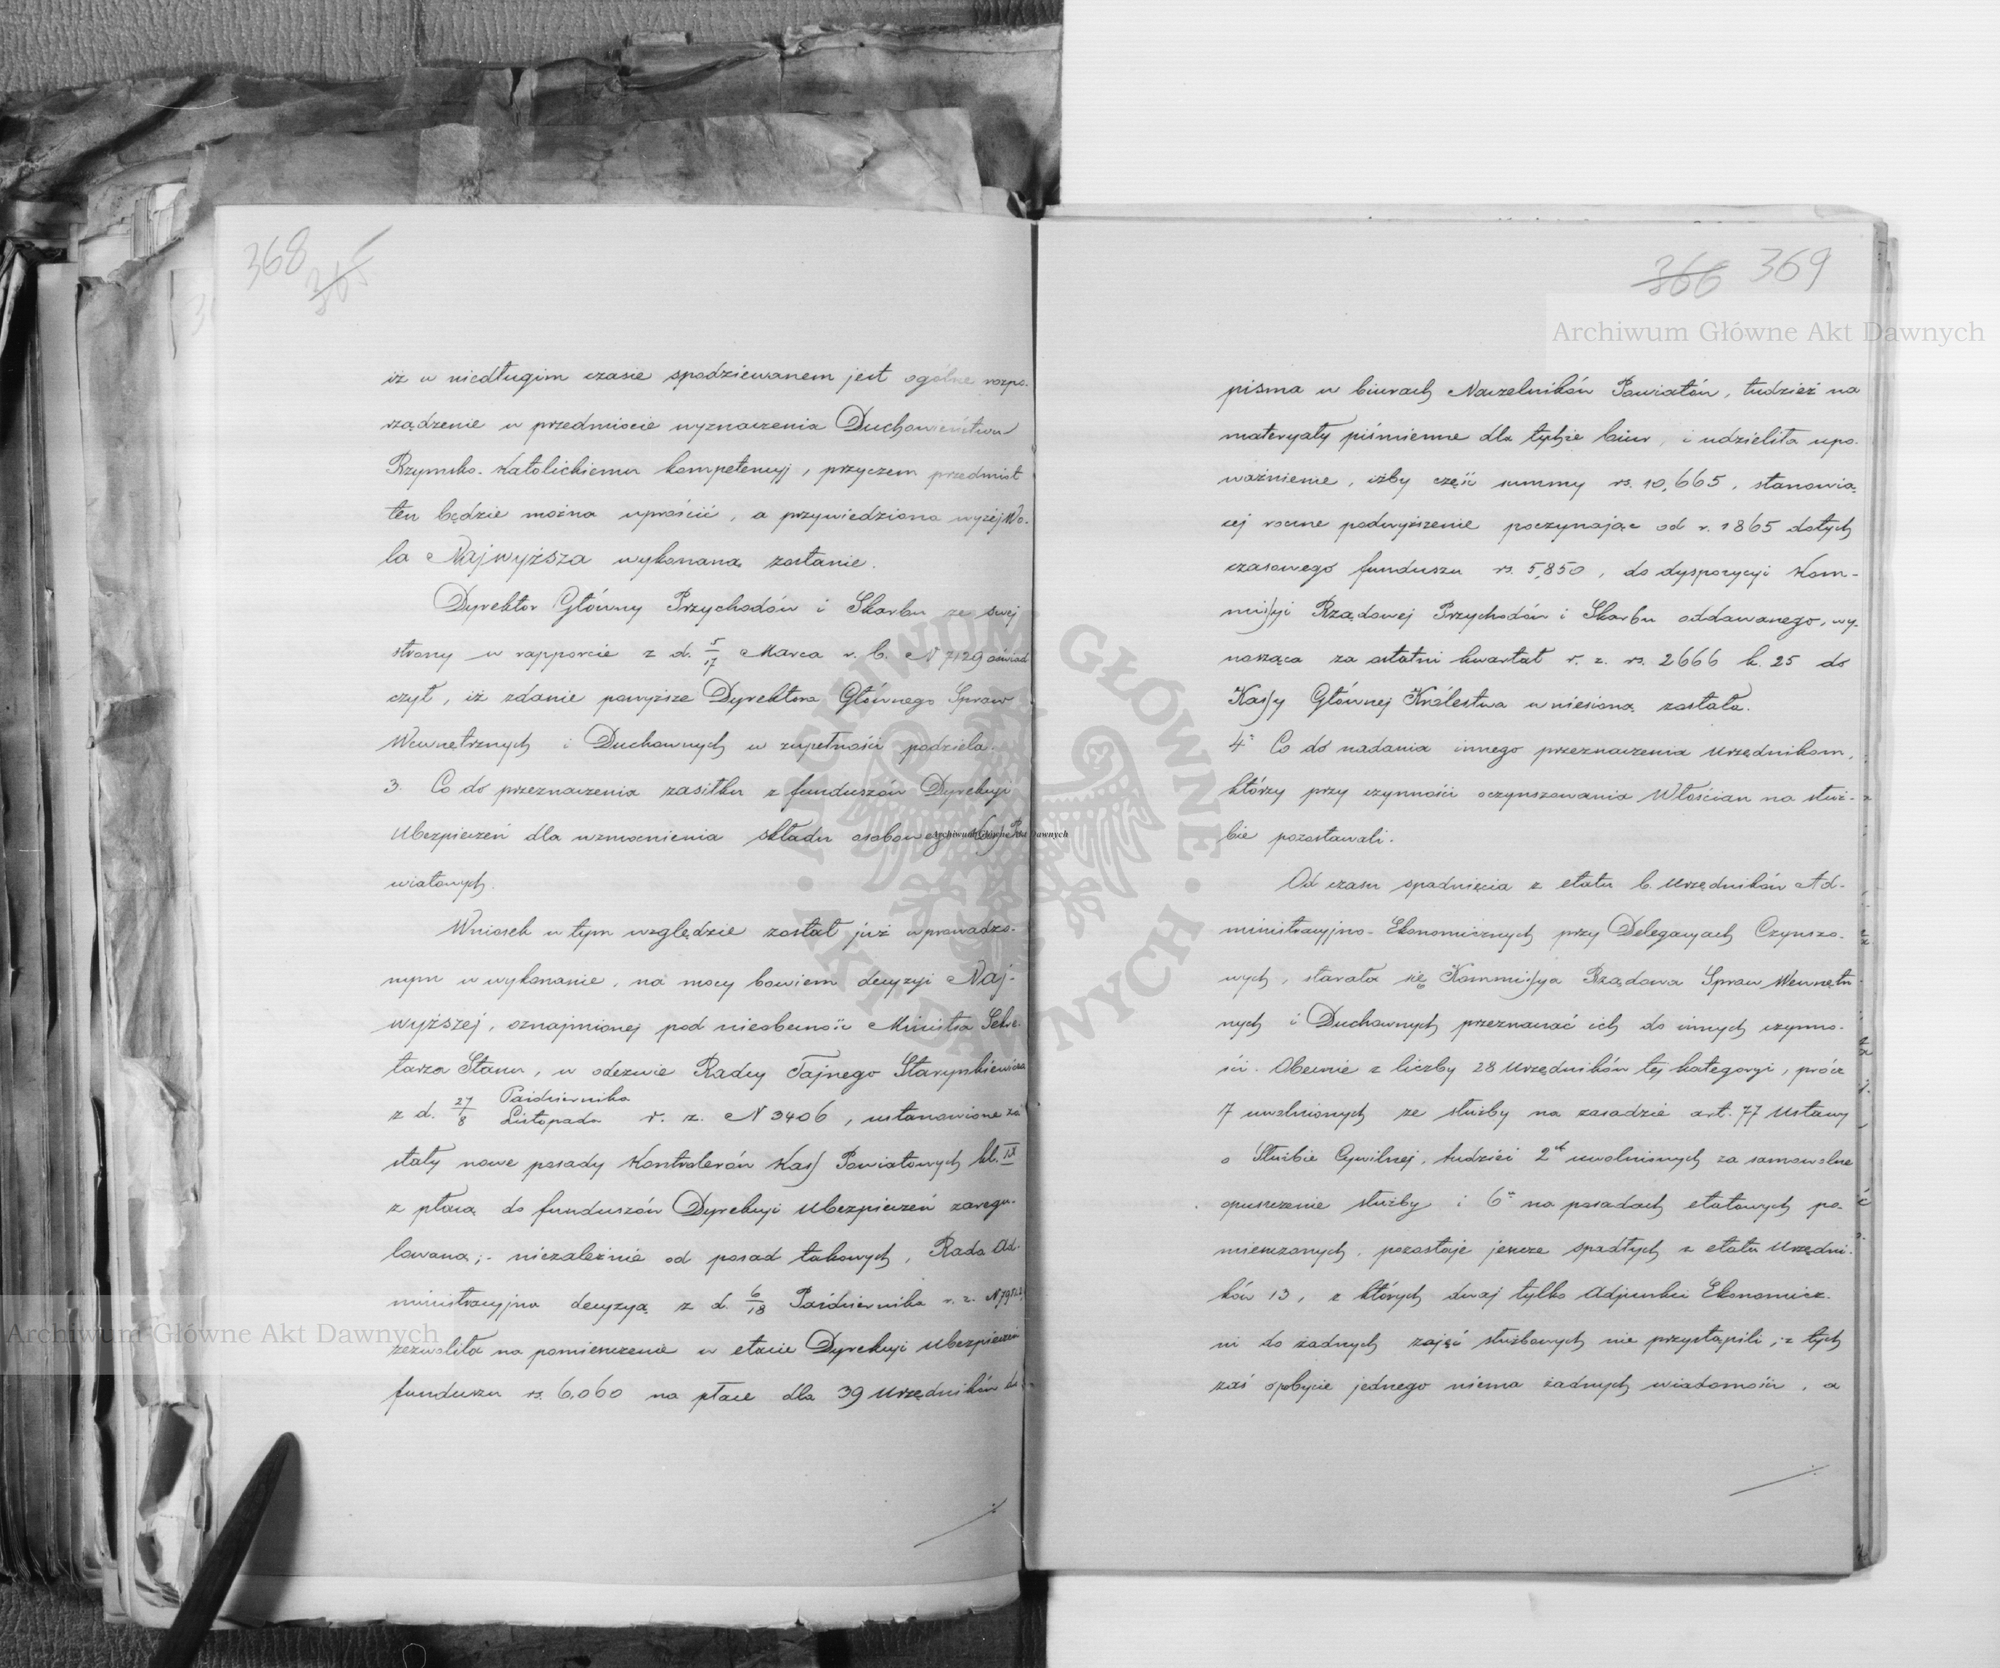 368
365
iż w niedługim czasie spodziewanem jest ogólne rozpo-
rządzenie w przedmiocie wyznaczenia Duchowieństwu
Rzymsko-Katolickiemu kompetencyj, przyczem przedmiot
ten będzie można uprościć, a przywiedziona wyżej Wo-
la Najwyższa wykonaną zostanie.
Dyrektor Główny Przychodów i Skarbu ze swej
strony w rapporcie z d. 5/17 Marca r. b. N 7129 oświad
czył, iż zdanie powyższe Dyrektora Głównego Spraw
Wewnętrznych i Duchownych w zupełności podziela.
3. Co do przeznaczenia zasiłku z funduszów Dyrekcyi
Ubezpieczeń dla wzmocnienia składu osobowego Kass Po
wiatowych.
Wniosek w tym względzie został już wprowadzo-
nym w wykonanie, na mocy bowiem decyzyi Naj-
wyższej, oznajmionej pod nieobecność Ministra Sekre-
tarza Stanu, w odezwie Radcy Tajnego Starynkiewicza
z d. 27 Października / 8 Listopada r. z. N 3406, ustanowione zo
stały nowe posady Kontrolerów Kass Powiatowych kl. IX
z płacą do funduszów Dyrekcyi Ubezpieczeń zaregu-
lowaną;- niezależnie od posad takowych, Rada Ad-
ministracyjna decyzyą z d. 6/18 Października r. z.
zezwoliła na pomieszczenie w etacie Dyrekcyi Ubezpieczeń
funduszu rs. 6,060 na płace dla 39 Urzędników do
366 369
pisma w biurach Naczelników Powiatów, tudzież na
materyały piśmienne dla tychże biur, i udzieliła upo-
ważnienie, iżby część summy rs. 10,665, stanowią-
cej roczne podwyższenie poczynając od r. 1865 dotych
czasowego funduszu rs. 5,850, do dyspozycyi Kom-
missyi Rządowej Przychodów i Skarbu oddawanego, wy-
nosząca za ostatni kwartał r. z. rs. 2666 k. 25 do
Kassy Głównej Królestwa wniesioną została.
4° Co do nadania innego przeznaczenia Urzędnikom,
którzy przy czynności oczynszowania Włościan na służ-
bie pozostawali.
Od czasu spadnięcia z etatu b. Urzędników Ad-
ministracyjno-Ekonomicznych przy Delegacyach Czynszo-
wych, starała się Kommissya Rządowa Spraw Wewnętrz
nych i Duchownych przeznaczać ich do innych czynno-
ści. Obecnie z liczby 28 Urzędników tej kategoryi, prócz
7 uwolnionych ze służby na zasadzie art. 77 Ustawy
o Służbie Cywilnej, tudzież 2ch uwolnionych za samowolne
opuszczenie służby i 6u na posadach etatowych po-
mieszczonych, pozostaje jeszcze spadłych z etatu Urzędni-
ków 13, z których dwaj tylko Adjunkci Ekonomicz-
ni do żadnych zajęć służbowych nie przystąpili;- z tych
zaś o pobycie jednego niema żadnych wiadomości, a
Archiwum Główne Akt Dawnych
Archiwum Główne Akt Dawnych
Archiwum Główne Akt Dawnych
ARCHIWUM GŁÓWNE AKT DAWNYCH